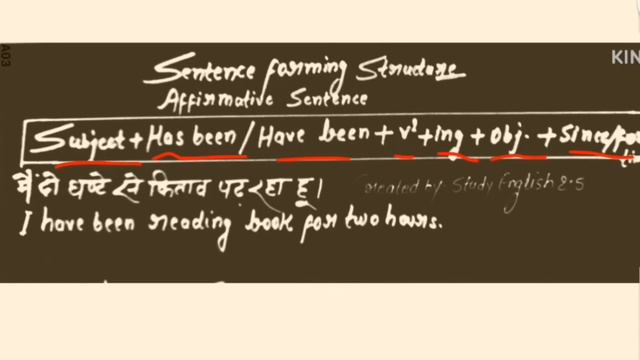 KIN
A03
Sentence forming Structure
Affirmative Sentence
Subject + Has been / Have been + V¹ + ing + Obj. + Since/for
मैं दो घण्टे से किताब पढ़ रहा हू।
Created by: Study English 2.5
I have been reading book for two hours.